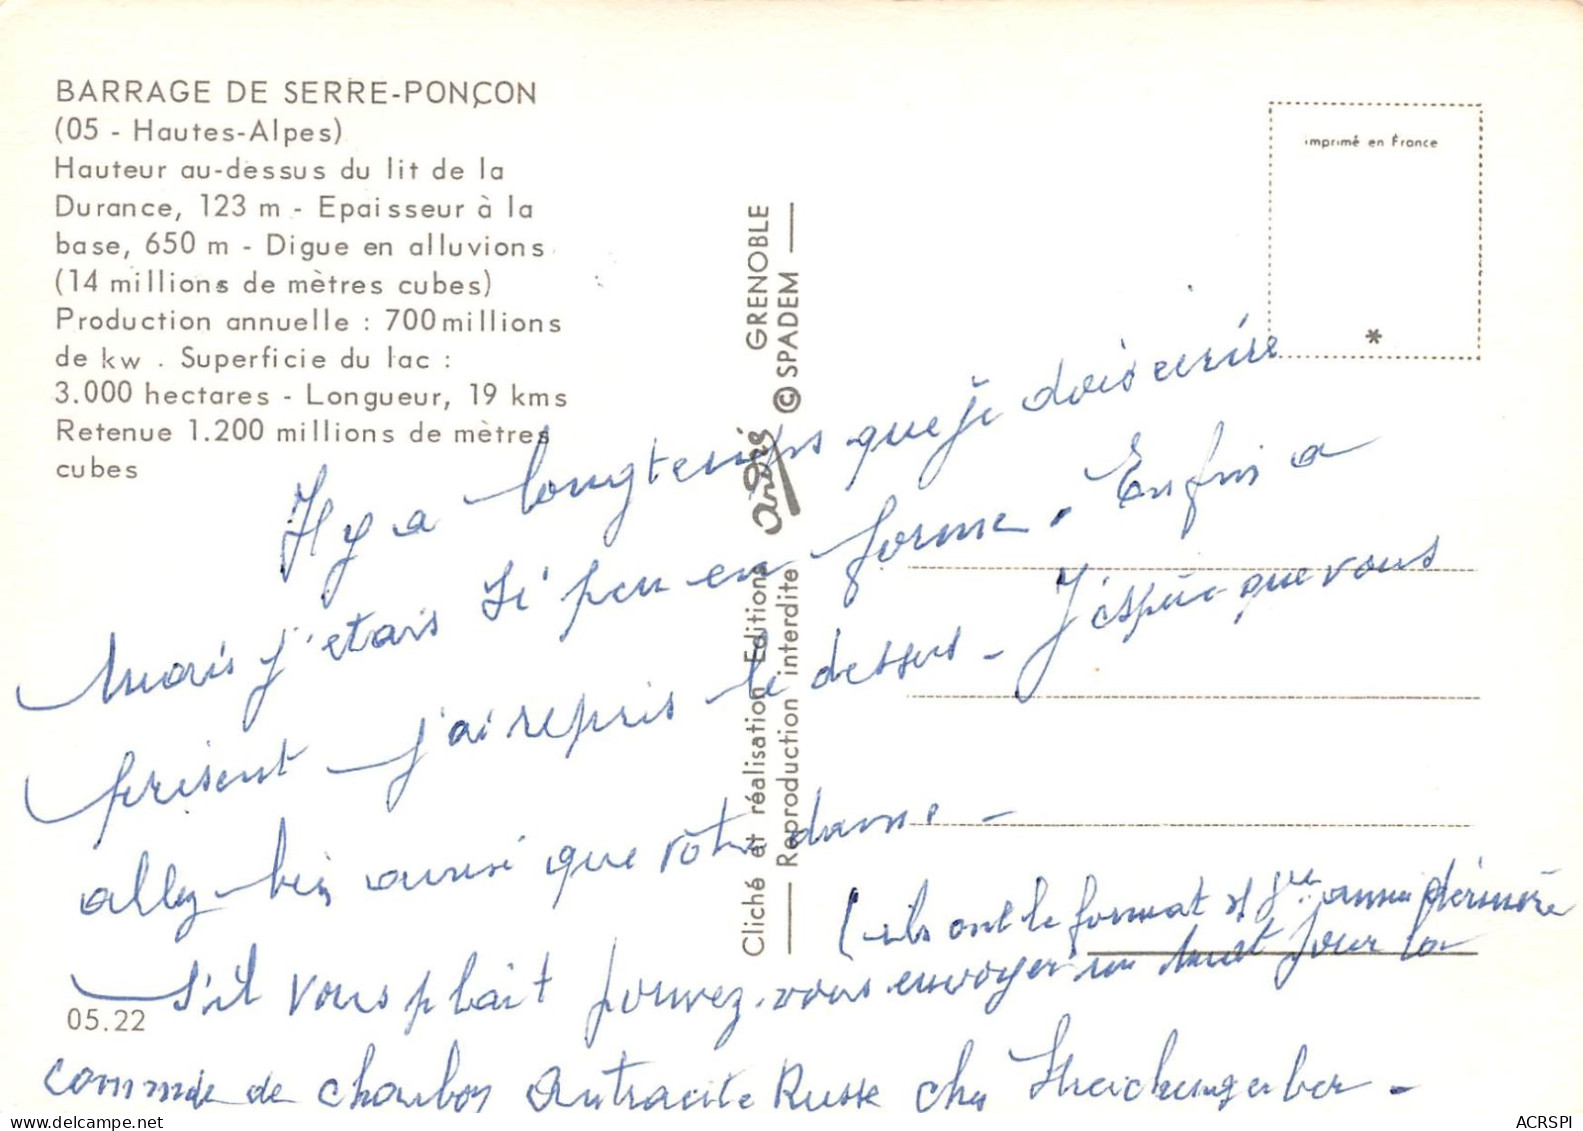 BARRAGE DE SERRE-PONÇON
(05 - Hautes-Alpes)
Hauteur au-dessus du lit de la
Durance, 123 m - Epaisseur à la
base, 650 m - Digue en alluvions
(14 millions de mètres cubes)
Production annuelle : 700 millions
de kw . Superficie du lac :
3.000 hectares - Longueur, 19 kms
Retenue 1.200 millions de mètres
cubes
05.22
Cliché et réalisation Editions André GRENOBLE
Reproduction interdite © SPADEM
imprimé en France
*
Il y a longtemps que je dois ecrire
Mais j'etais si peu en forme. Enfin a
présent j'ai repris le dessus - J'espère que vous
allez bien aussi que votre dame -
(ils ont le format et année dernière
s'il vous plait pouvez-vous envoyer un pour la
commnde de charbon Antracite Russe chez
ACRSPI